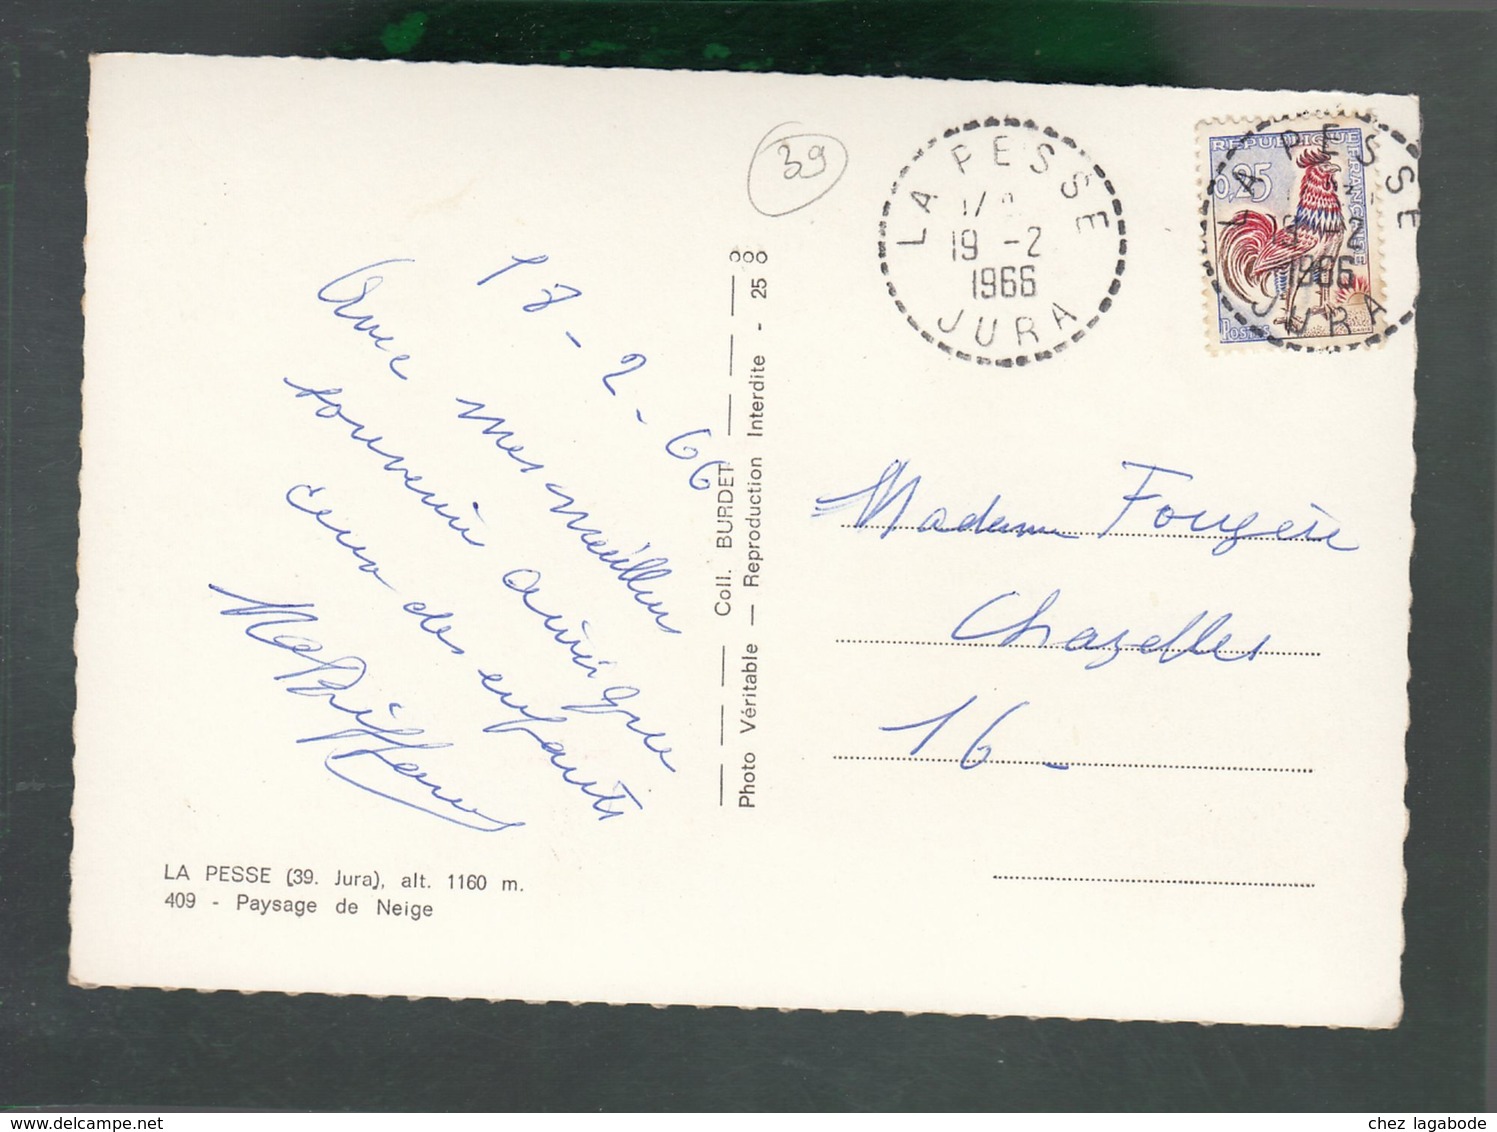 18-2-66
Avec mes meilleurs
souvenirs ainsi que
ceux des enfants
LA PESSE (39. Jura), alt. 1160 m.
409 - Paysage de Neige
Coll. BURDET
Photo Véritable — Reproduction Interdite - 25 8
39
LA PESSE
19 -2
1966
JURA
REPUBLIQUE FRANÇAISE
0,25
POSTES
LA PESSE
-2
1966
JURA
Madame Fougère
Chazelles
16-
chez lagabode